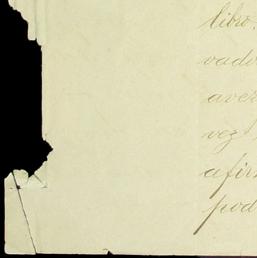 libro.
vad
aver
vez
afir
pod